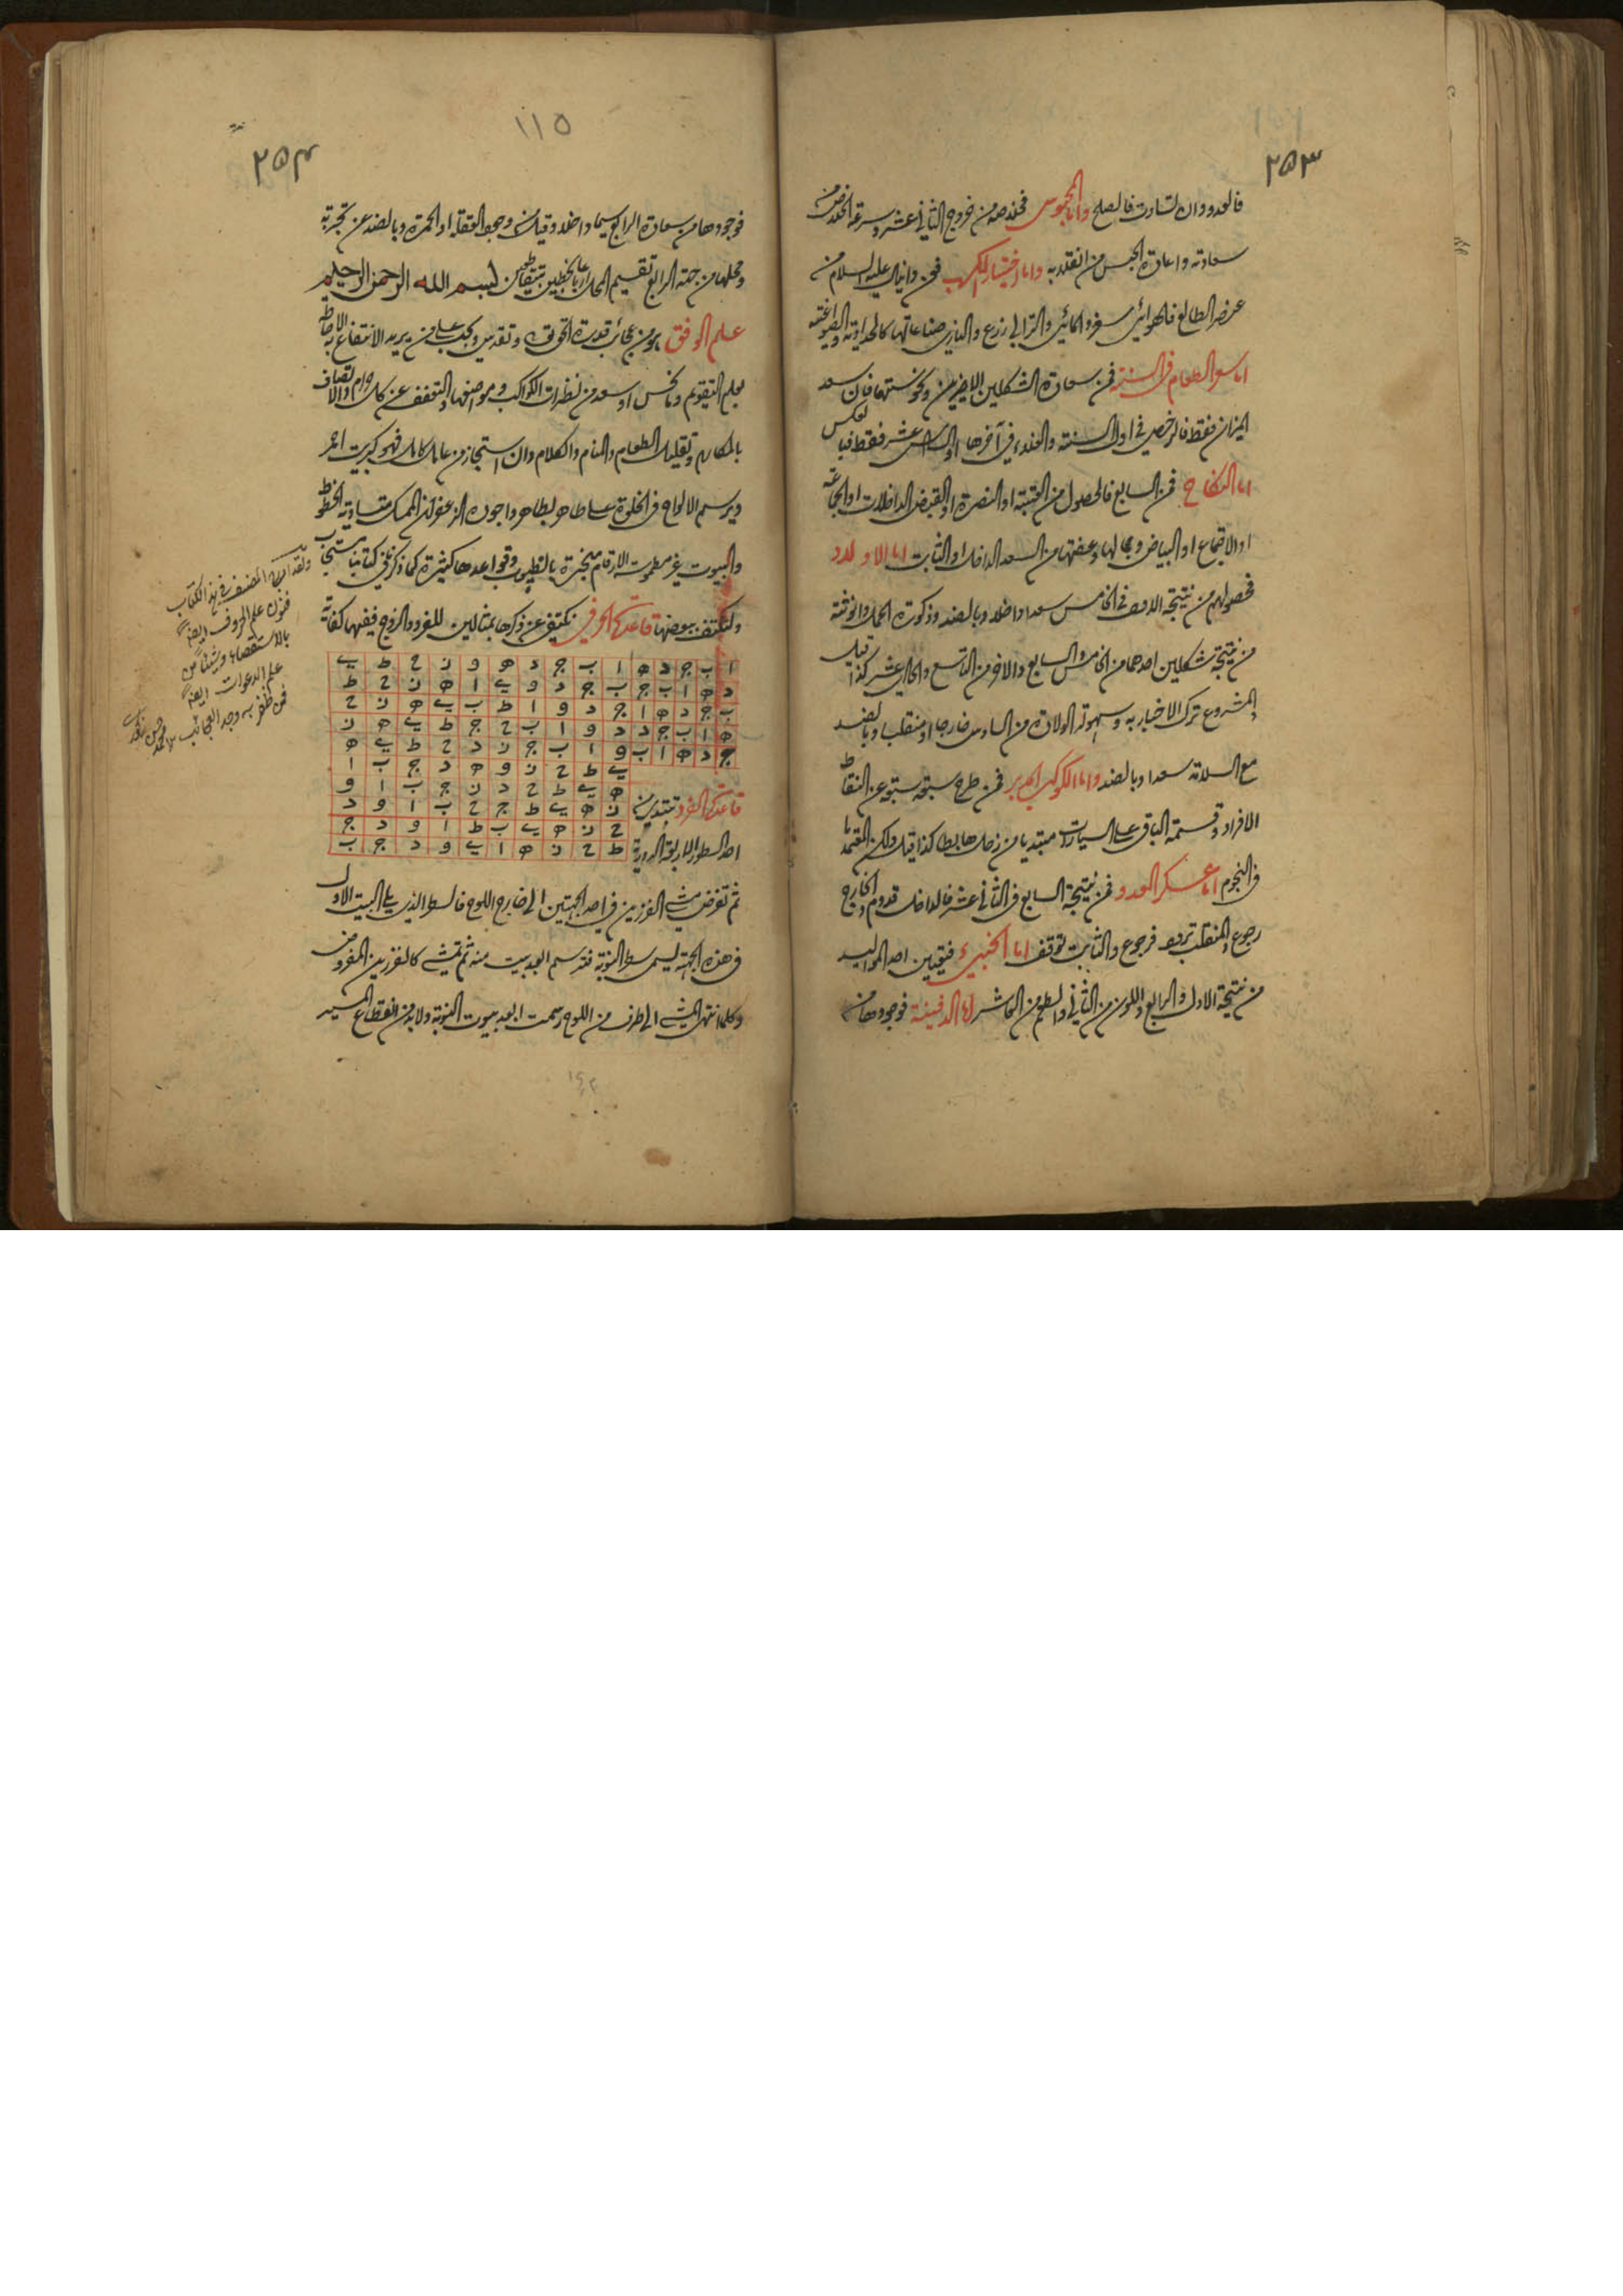 ٢٥٣
فالعدو وان تساوت فالصلح واما المحبوس فخلاصه من خروج الثاني عشر وسرعة الخلاص من
سعادته واعادة الحبس من انقلابه واما اختيار الكسب فعن دانيال عليه السلام من
عنصر الطالع فالهوائي سفر والمائي والترابي زرع والناري صناعاتها كالحدادة والصياغة
اما سعر الطعام في السنة فمن سعادة الشكلين الاخيرين ونحوستهما فان سعد
الميزان فقط فالرخص في اول السنة والغلاء في آخرها او السادس عشر فقط فبالعكس
اما النكاح فمن السابع فالحصول من العتبة او النصرة او القبض الداخلات او الجماعة
او الاجتماع او البياض وجمالها وعفتها من السعد الداخل او الثابت اما الاولاد
فحصولهم من نتيجة الاول في الخامس سعدا داخلا وبالضد وذكورة الحمل وانوثته
من نتيجة شكلين احدهما من الخامس والسابع والآخر من التاسع والحادي عشر كذا قيل
والمشروع ترك الاخبار به وسهولة الولادة من السادس خارجا او منقلبا وبالضد
مع السلامة سعدا وبالضد واما الكوكب المدبر فمن طرح سبعة سبعة عن النقاط
الافراد وقسمة الباقي على السيارات مبتديا من زحل هابطا كذا قيل ولكن اعتمدنا
في النجوم اما عسكر العدو فمن نتيجة السابع في الثاني عشر فالداخل قدوم والخارج
رجوع والمنقلب تردد فرجوع والثابت توقف اما الخبيء فتعيين احد المواليد
من نتيجة الاول والرابع واللون من الثاني والطعم من العاشر اما الدفينة فوجودها من
١١٥
٢٥٤
فوجودها من سعادة الرابع سيما داخلا وقيل من وجود العقلة او الحمرة وبالضد عن تجربة
ومحلها من جهة الرابع تقسيم المحل ارباعا بخطين يتقاطعين بسم الله الرحمن الرحيم
علم الوفق
بعلم التقويم وما نحس او سعد من نظرات الكواكب ومواضعها والتعفف عن كل حرام والاتصاف
بالمكارم وتقليل الطعام والمنام والكلام وان استجاز من عامل كامل فهو كبريت احمر
ويرسم الالواح في الخلوة على طاهر بطاهر واجوده الزعفران والمسك متساوية الخطوط
والبيوت غير مطموسة الارقام مبخرة بالطيب وقواعدها كثيرة كما ذكرنا في كتابنا مستجاب
ولنكتف ببعضها قاعدة الحرفي نكتفي عن ذكرها بمثالين للفرد والزوج ففيهما كفاية
ا ب ج د ه ا ب ج د ه و ز ح ط ي
د ه ا ب ج ب ج د و ي ا ه ز ح ط
ب ج د ه ا ج د و ا ط ب ي ه ز ح
ه ا ب ج د د و ا ب ح ج ط ي ه ز
ج د ه ا ب و ا ب ج ز د ح ط ي ه
ي ط ح ز و ه د ج ب ا
ه ي ط ح د ز ج ب ا و
قاعدة الفرد تبتدئ من ز ه ي ط ج ح ب ا و د
ح ز ه ي ب ط ا و د ج
احد السطور الاربعة الدورية ط ح ز ه ا ي و د ج ب
ثم تفرض مشي الفرزين في احد الجهتين الى خارج اللوح فالسطر الذي يلي البيت الاول
في هذه الجهة ليسمى سطر النوبة فترسم العدد بيت منه ثم تمشي كالفرزين المفروض
وكلما انتهى المشي الى طرف من اللوح رسمت العدد بيوت النوبة ولا بد من انقطاع السير
ولقد ادرج المصنف في هذا الكتاب
فنون علم الحروف ايضا
بالاستقصاء وشيئا من
علم الدعوات ايضا
فمن ظفر به وجد العجائب